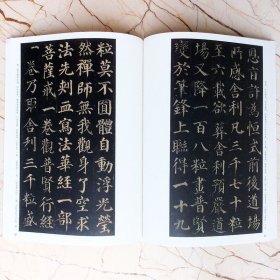 恩旨許為恒式前後道場
所感舍利凡三千七十粒
至六載欲葬舍利預嚴道
場又降一百八粒畫普賢
變於筆鋒上聯得一十九
粒莫不圓體自動浮光瑩
然禪師無我觀身了空求
法先刺血寫法華經一部
菩薩戒一卷觀普賢行經
一卷乃取舍利三千粒盛